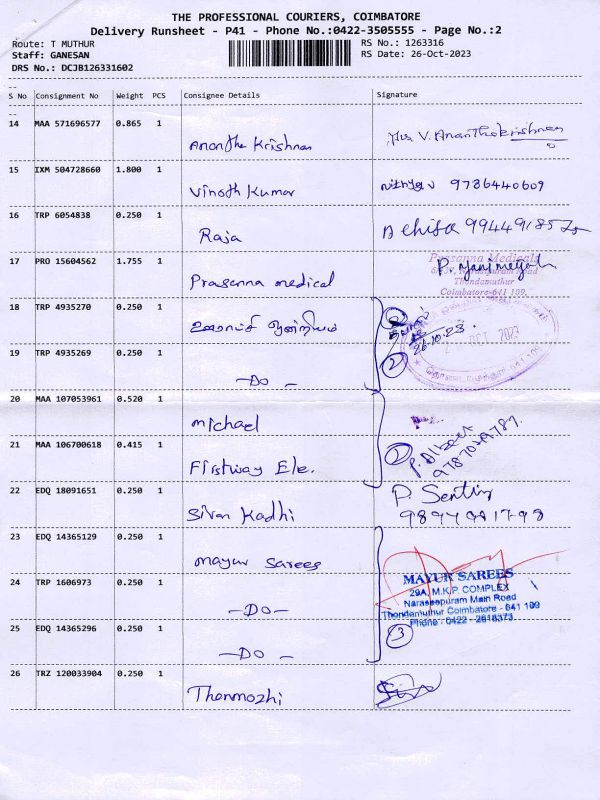 THE PROFESSIONAL COURIERS, COIMBATORE
Delivery Runsheet - P41 - Phone No.:0422-3505555 - Page No.:2
Route: T MUTHUR
Staff: GANESAN
DRS No.: DCJB126331602
RS No.: 1263316
RS Date: 26-Oct-2023
S No Consignment No Weight PCS Consignee Details Signature
14 MAA 571696577 0.865 1
Anantha Krishnan
V. Ananthakrishnan
15 IXM 504728660 1.800 1
Vinoth Kumar
Nithya V 9786440609
16 TRP 6054838 0.250 1
Raja
17 PRO 15604562 1.755 1
Prasanna medical
Prasanna Medicals
Thondamuthur
Coimbatore-641 109.
18 TRP 4935270 0.250 1
ஊராட்சி ஒன்றியம்
26.10.23
2023
19 TRP 4935269 0.250 1
-Do-
2
20 MAA 107053961 0.520 1
michael
21 MAA 106700618 0.415 1
Firstway Ele.
P. Albert
22 EDQ 18091651 0.250 1
Sivan Kadhi
P. Senthil
23 EDQ 14365129 0.250 1
mayur sarees
MAYUR SAREES
29A, M.K.P. COMPLEX
Narasapuram Main Road
Thondamuthur Coimbatore - 641 109
Phone : 0422 - 2618373
24 TRP 1606973 0.250 1
-Do-
25 EDQ 14365296 0.250 1
-Do-
3
26 TRZ 120033904 0.250 1
Thenmozhi